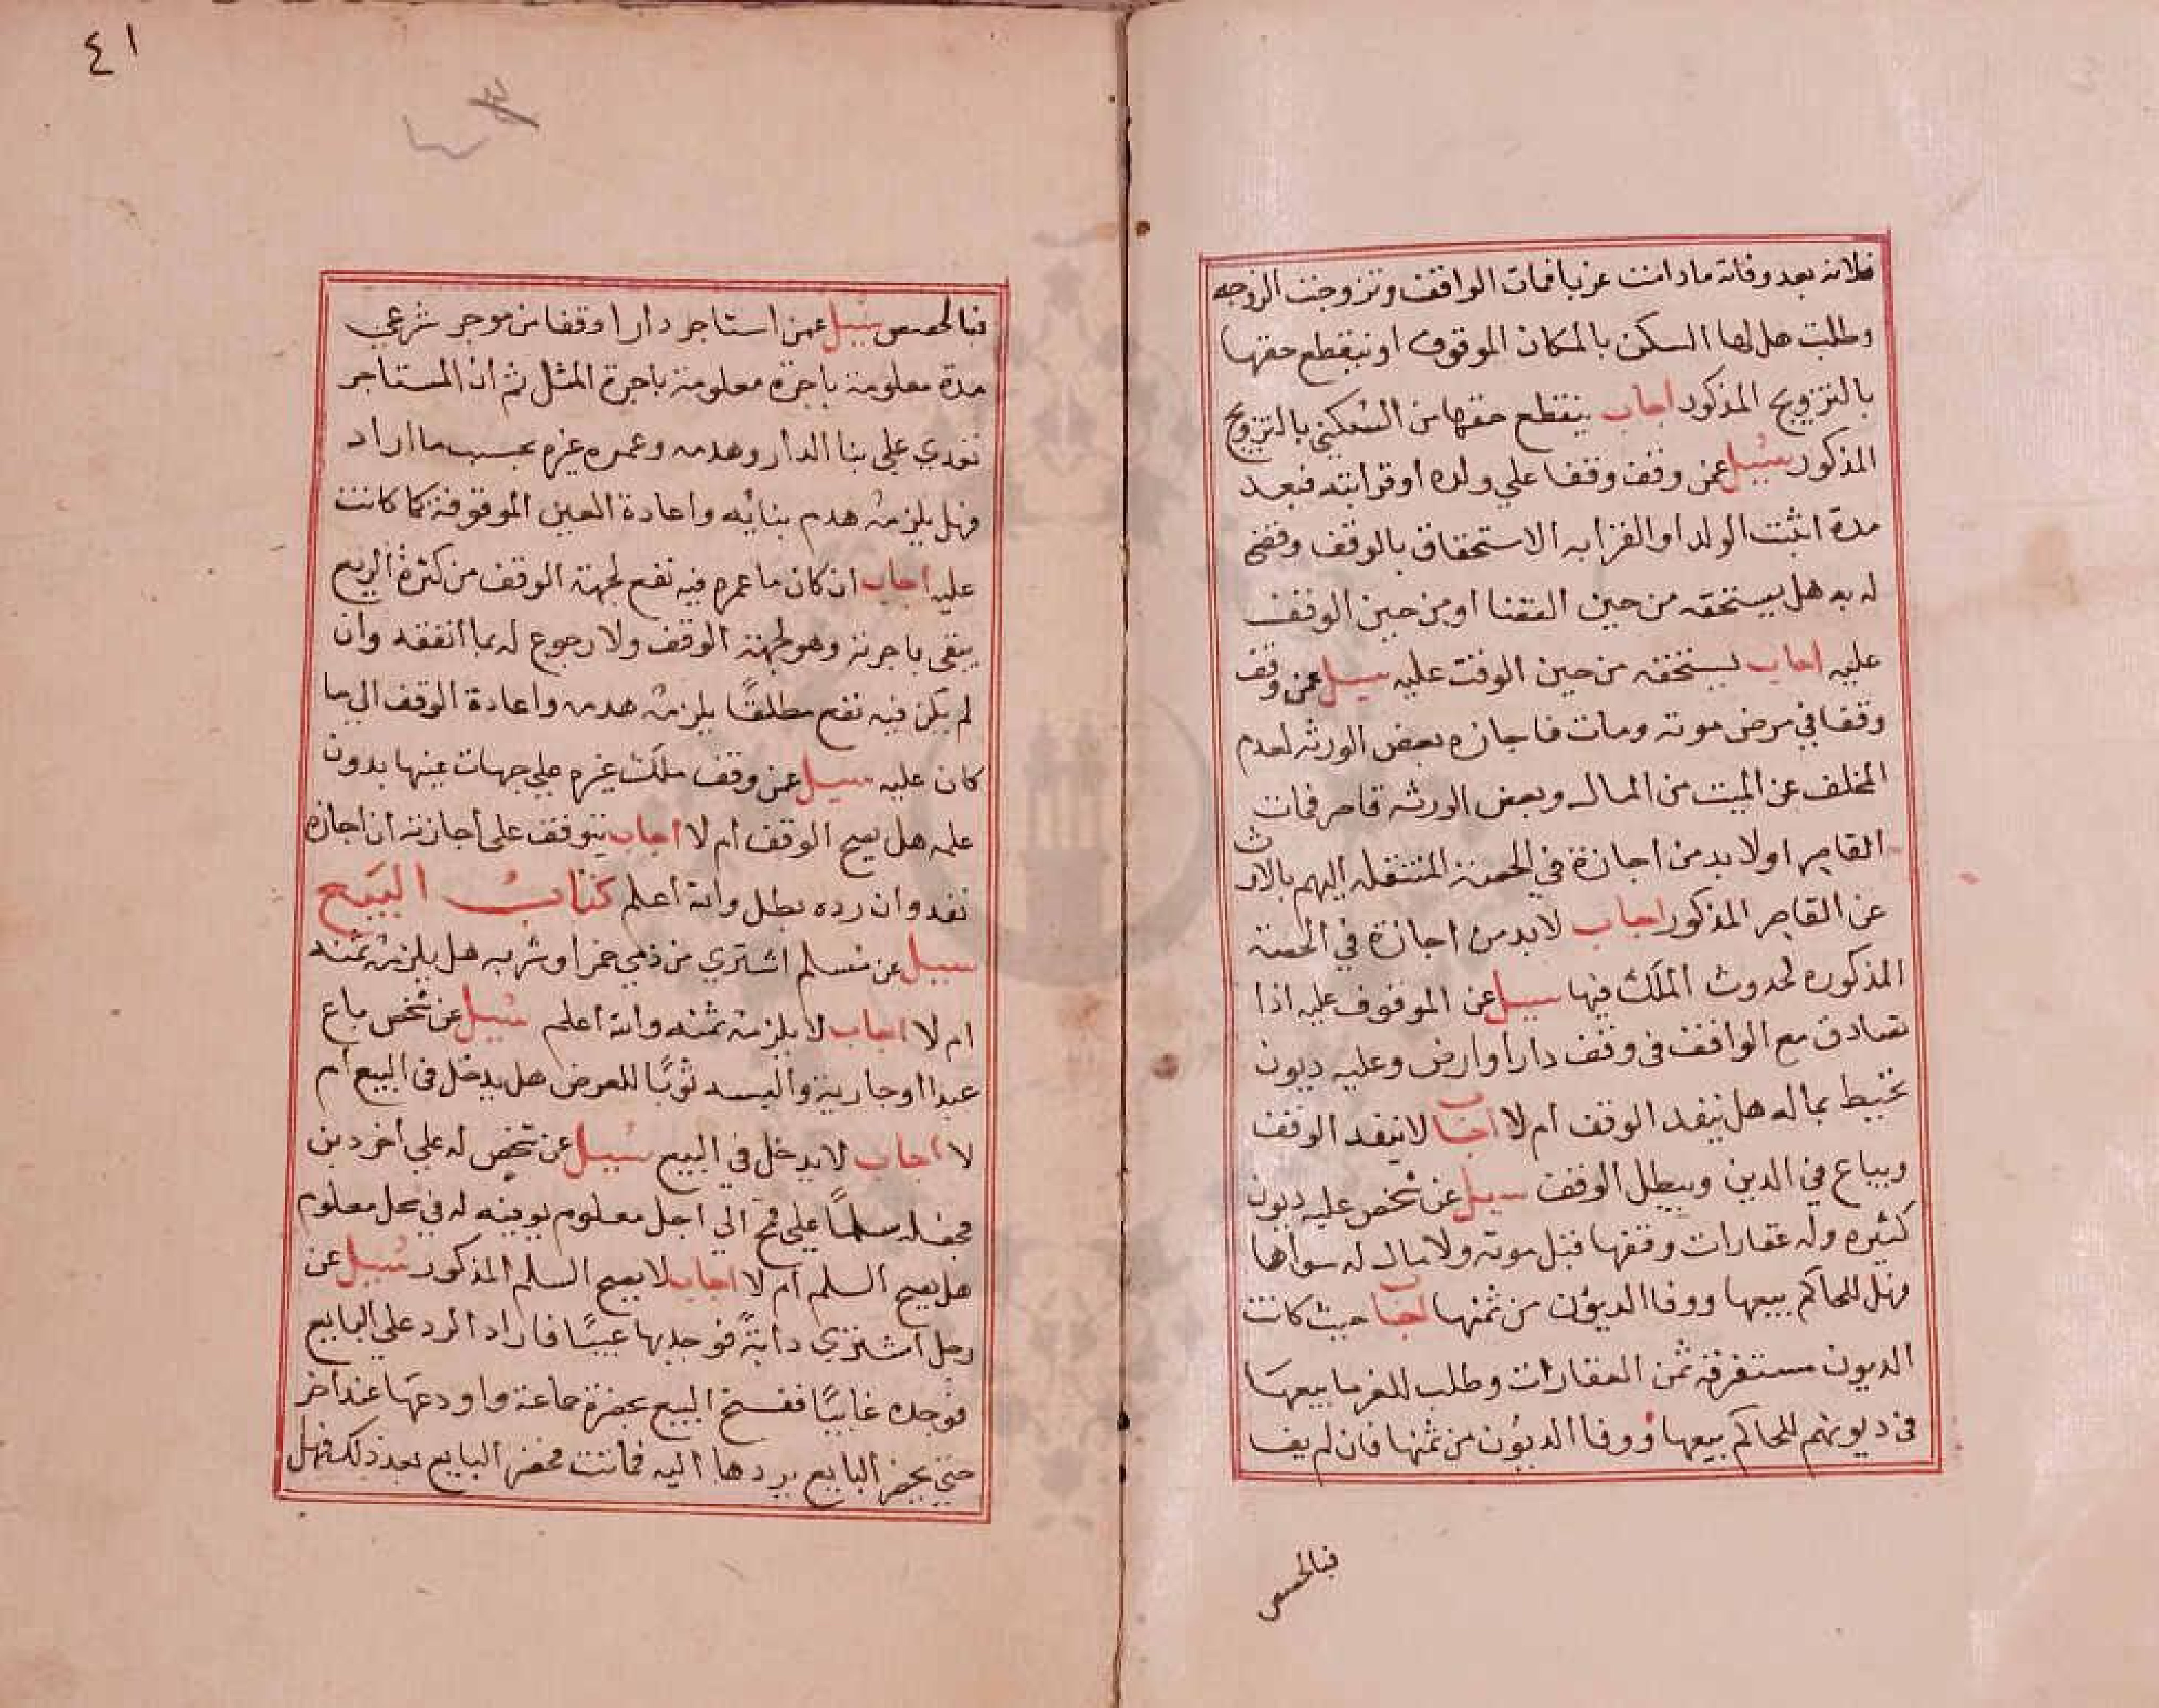 فلانه بعد وفاته مادامت عزبا فمات الواقف وتزوجت الزوجه
وطلبت هل لها السكن بالمكان الموقوف او ينقطع حقها
بالتزويج المذكور اجاب ينقطع حقها من السكني بالتزويج
المذكور سيل عن وقف وقفا علي ولده او قرابته فبعد
مدة اثبت الولد او القرابه الاستحقاق بالوقف وقضي
له به هل يستحقه من حين القضا او من حين الوقف
عليه اجاب يستحقه من حين الوقف عليه سيل عمن وقف
وقفا في مرض موته ومات فاجازه بعض الورثه لعدم
المخلف عن الميت من المال وبعض الورثه قاصر فمات
القاصر اولا بد من اجازة في الحصة المنتقله اليهم بالارث
عن القاصر المذكور اجاب لابد من اجازة في الحصة
المذكوره لحدوث الملك فيها سيل عن الموقوف عليه اذا
تصادق مع الواقف في وقف دار او ارض وعليه ديون
تحيط بماله هل ينفد الوقف ام لا اجاب لا ينفد الوقف
ويباع في الدين ويبطل الوقف سيل عن شخص عليه ديون
كثيره وله عقارات وقفها قبل موته ولا مال له سواها
فهل للحاكم بيعها ووفا الديون من ثمنها اجاب حيث كانت
الديون مستغرقة ثمن العقارات وطلب الغرما بيعها
في ديونهم للحاكم بيعها ووفا الديون من ثمنها فان لم يف
فبالحصص
٤١
فبالحصص سيل عمن استاجر دارا وقفا من موجر شرعي
مدة معلومة باجرة معلومة باجرة المثل ثم ان المستاجر
تعدي علي بنا الدار وهدمه وعمره غيره بحسب ما اراد
فهل يلزمه هدم بنائه واعادة العين الموقوفة كما كانت
عليه اجاب ان كان ما عمره فيه نفع لجهة الوقف من كثرة الريع
يبقي باجرته وهو لجهة الوقف ولا رجوع له بما انفقه وان
لم يكن فيه نفع مطلقًا يلزمه هدمه واعادة الوقف الي ما
كان عليه سيل عمن وقف ملك غيره علي جهات عينها بدون
علمه هل يصح الوقف ام لا اجاب يتوقف علي اجازته ان اجازه
نفد وان رده بطل والله اعلم كتاب البيع
سيل عن مسلم اشتري من ذمي خمرا وشربه هل يلزمه ثمنه
ام لا اجاب لا يلزمه ثمنه والله اعلم سيل عن شخص باع
عبدا او جارية والبسه ثوبًا للعرض هل يدخل في البيع ام
لا اجاب لا يدخل في البيع سيل عن شخص له علي اخر دين
فجعله سلمًا علي قمح الي اجل معلوم يوفيه له في محل معلوم
هل يصح السلم ام لا اجاب لا يصح السلم المذكور سيل عن
رجل اشتري دابةً فوجد بها عيبًا فاراد الرد علي البايع
فوجده غايبًا ففسخ البيع بحضرة جماعة واودعها عند اخر
حتي يحضر البايع يردها اليه فماتت فحضر البايع بعد ذلك فهل